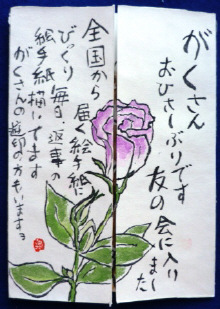 がくさん
おひさしぶりです
友の会に入りました
全国から
届く絵手紙
びっくり毎日、返事の
絵手紙描いてます
がくさんの
の方もいますョ